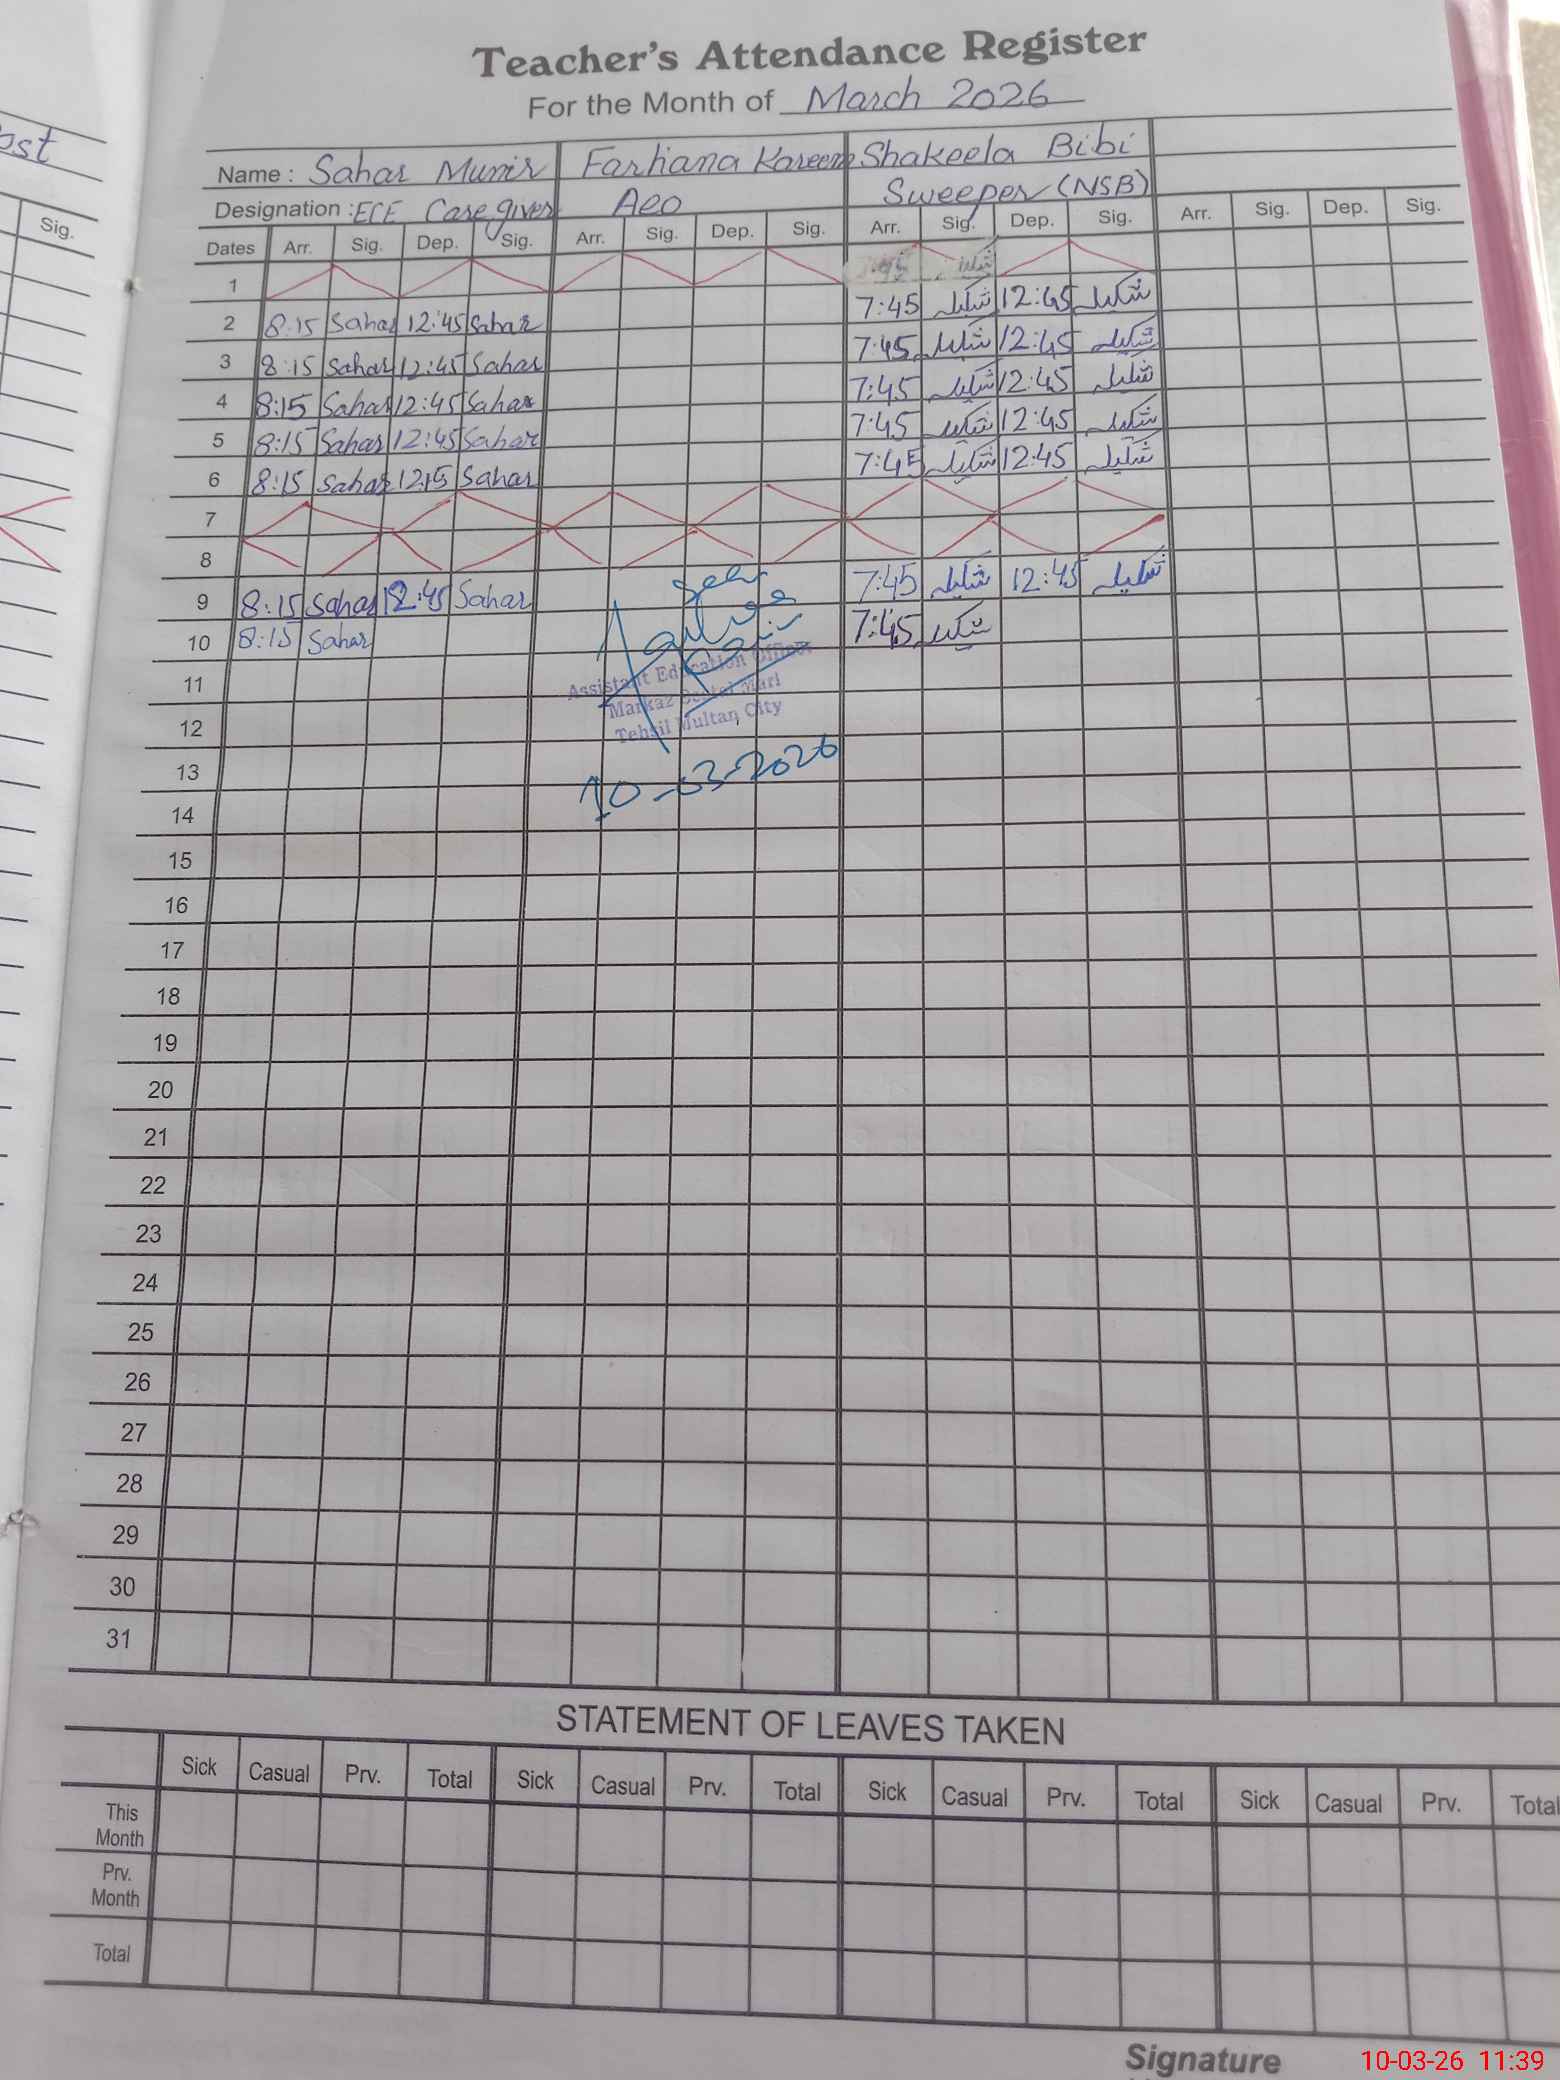 ost
Sig.
Teacher's Attendance Register
For the Month of March 2026
Name : Sahar Munir Farhana Kareem Shakeela Bibi
Designation : ECE Care giver Aeo Sweeper (NSB)
Dates Arr. Sig. Dep. Sig. Arr. Sig. Dep. Sig. Arr. Sig. Dep. Sig. Arr. Sig. Dep. Sig.
1 7:45 شکیلہ
2 8:15 Sahar 12:45 Sahar 7:45 شکیلہ 12:45 شکیلہ
3 8:15 Sahar 12:45 Sahar 7:45 شکیلہ 12:45 شکیلہ
4 8:15 Sahar 12:45 Sahar 7:45 شکیلہ 12:45 شکیلہ
5 8:15 Sahar 12:45 Sahar 7:45 شکیلہ 12:45 شکیلہ
6 8:15 Sahar 12:15 Sahar 7:45 شکیلہ 12:45 شکیلہ
7
8
9 8:15 Sahar 12:45 Sahar 7:45 شکیلہ 12:45 شکیلہ
10 8:15 Sahar 7:45 شکیلہ
Seen
Assistant Education Officer
Markaz Mari
Tehsil Multan City
10-03-2026
11
12
13
14
15
16
17
18
19
20
21
22
23
24
25
26
27
28
29
30
31
STATEMENT OF LEAVES TAKEN
Sick Casual Prv. Total Sick Casual Prv. Total Sick Casual Prv. Total Sick Casual Prv. Total
This Month
Prv. Month
Total
Signature
10-03-26 11:39